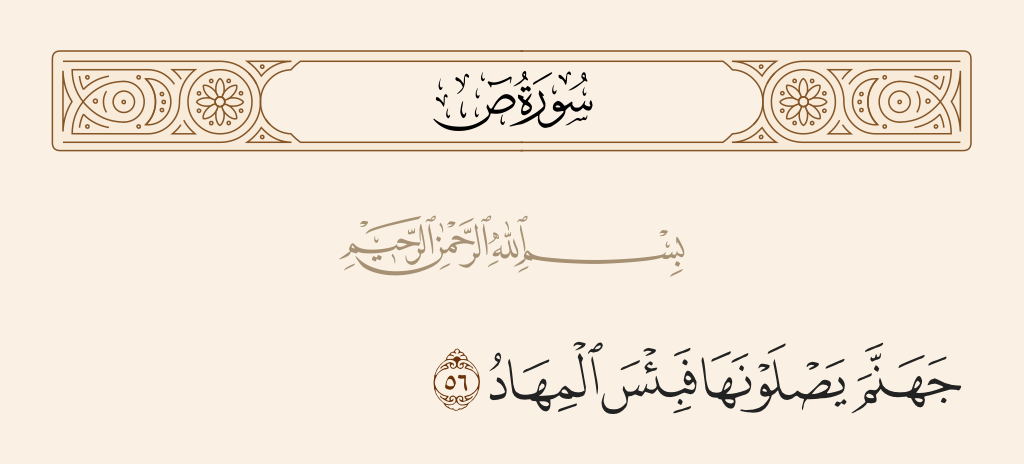 سُورَةُ صٓ
بِسْمِ ٱللَّهِ ٱلرَّحْمَٰنِ ٱلرَّحِيمِ
جَهَنَّمَ يَصْلَوْنَهَا فَبِئْسَ ٱلْمِهَادُ ٥٦